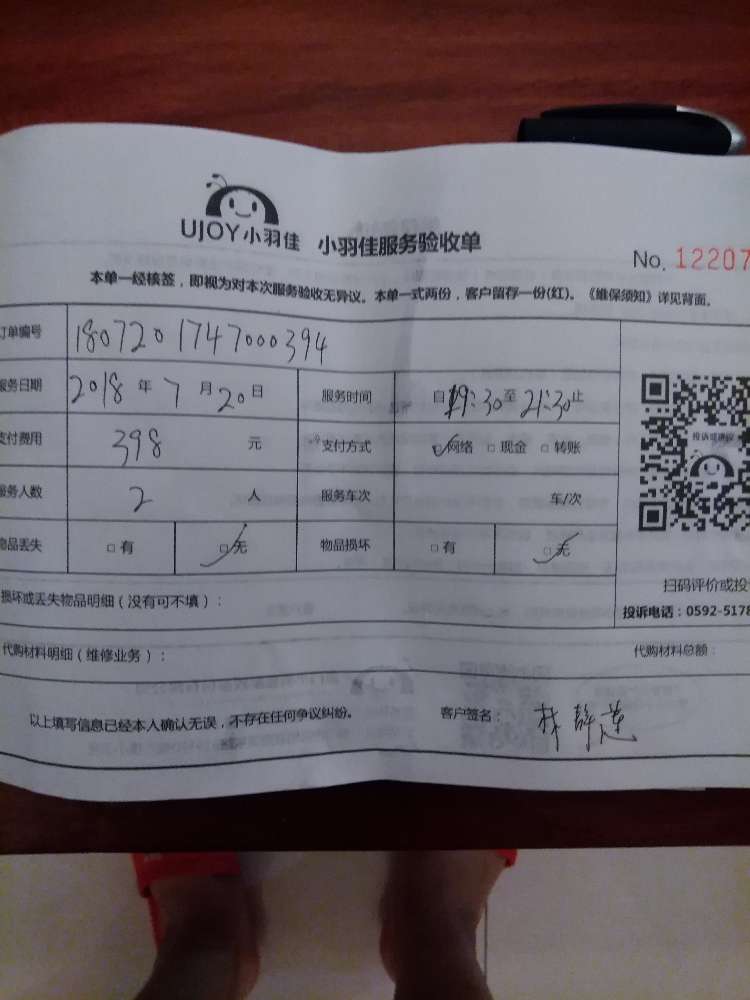 UJOY小羽佳 小羽佳服务验收单
No. 12207
本单一经核签，即视为对本次服务验收无异议。本单一式两份，客户留存一份(红)。《维保须知》详见背面。
订单编号 180720 1747000394
服务日期 2018 年 7 月 20 日 服务时间 自 19:30 至 21:30 止
支付费用 398 元 支付方式 ☑网络 □现金 □转账
投诉或建议
服务人数 2 人 服务车次 车/次
物品丢失 □有 ☑无 物品损坏 □有 ☑无
扫码评价或投
损坏或丢失物品明细（没有可不填）：
投诉电话：0592-5178
代购材料明细（维修业务）： 代购材料总额
以上填写信息已经本人确认无误，不存在任何争议纠纷。 客户签名： 林静莲